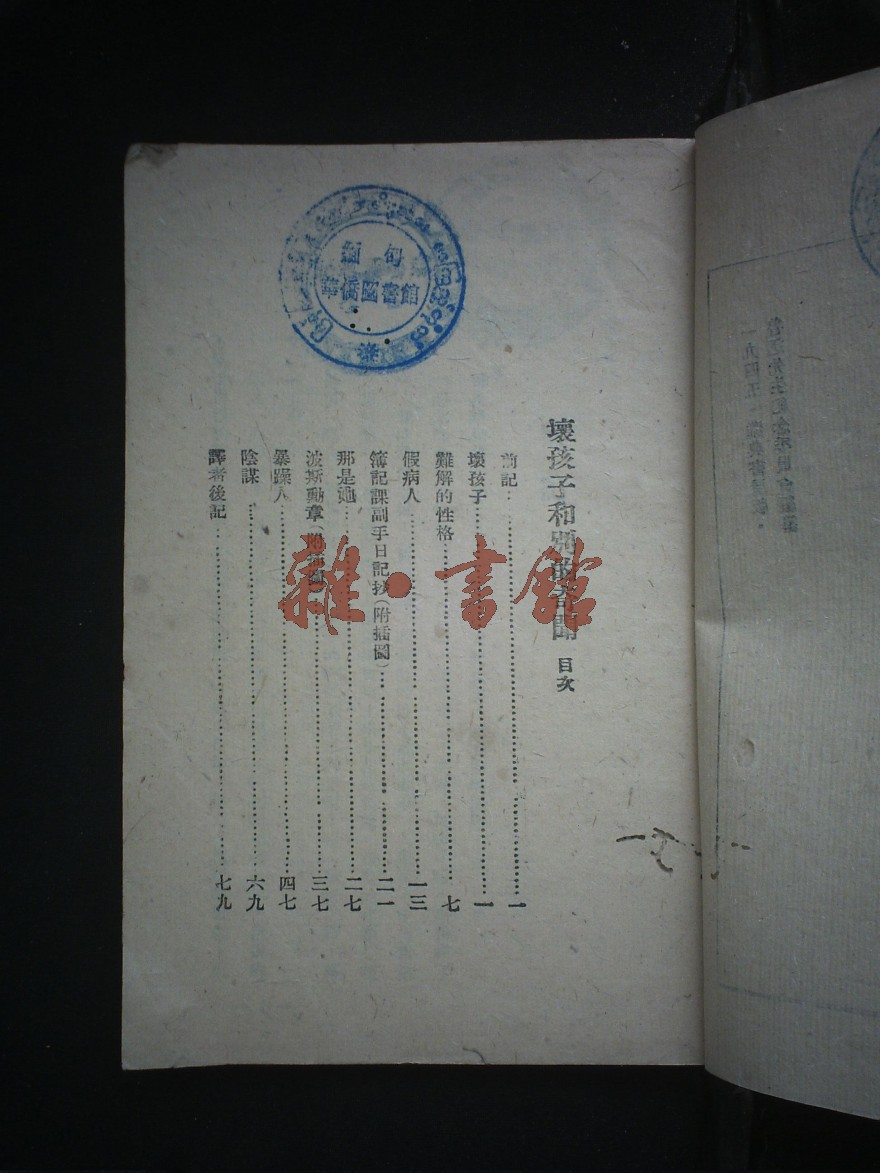 緬甸
華僑圖書館
壞孩子和別的奇聞 目次
前記……一
壞孩子……一
難解的性格……七
假病人……一三
簿記課副手日記抄(附插圖)……二一
那是她……二七
波斯勳章(附插圖)……三七
暴躁人……四七
陰謀……六九
譯者後記……七九
雜·書館